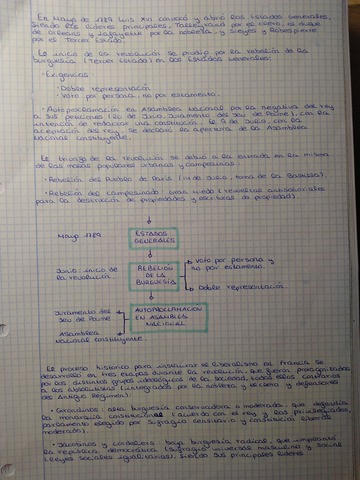 En Mayo de 1789 Luis XVI convocó y abrió los Estados Generales,
siendo los líderes principales, Talleyrand por el clero, el duque
de Orleans y Lafayette por la nobleza, y Sieyès y Robespierre
por el Tercer Estado.
El inicio de la revolución se produjo por la rebelión de la
burguesía (Tercer Estado) en los Estados Generales:
· Exigencias:
· Doble representación
· Voto por persona, no por estamento.
· Autoproclamación en Asamblea Nacional por la negativa del rey
a sus peticiones (20 de Junio, Juramento del Jeu de Paume), con la
intención de redactar una constitución. El 9 de Julio, con la
aceptación del rey, se declaró la apertura de la Asamblea
Nacional Constituyente.
El triunfo de la revolución se debió a la entrada en la misma
de las masas populares urbanas y campesinas:
· Rebelión del Pueblo de París (14 de Julio, toma de la Bastilla).
· Rebelión del campesinado: Gran miedo (revueltas antiseñoriales
para la destrucción de propiedades y escrituras de propiedad).
Mayo 1789
ESTADOS
GENERALES
Junio: inicio de
la revolución
REBELIÓN
DE LA
BURGUESÍA
Voto por persona y
no por estamento.
Doble representación
Juramento del
Jeu de Paume
AUTOPROCLAMACIÓN
EN ASAMBLEA
NACIONAL
Asamblea
Nacional Constituyente
El proceso histórico para instaurar el liberalismo en Francia se
desarrolló en tres etapas durante la revolución, que fueron protagonizadas
por los distintos grupos ideológicos de la sociedad, todos ellos contrarios
a los absolutistas (integrados por la nobleza y el clero y defensores
del Antiguo Régimen):
· Girondinos: alta burguesía conservadora o moderada, que defendía
la monarquía constitucional (acuerdo con el rey y los privilegiados,
parlamento elegido por sufragio censitario y constitución liberal
moderada).
· Jacobinos y cordeliers: baja burguesía radical, que implantó
la república democrática (sufragio universal masculino y social
(leyes sociales igualitarias), siendo sus principales líderes